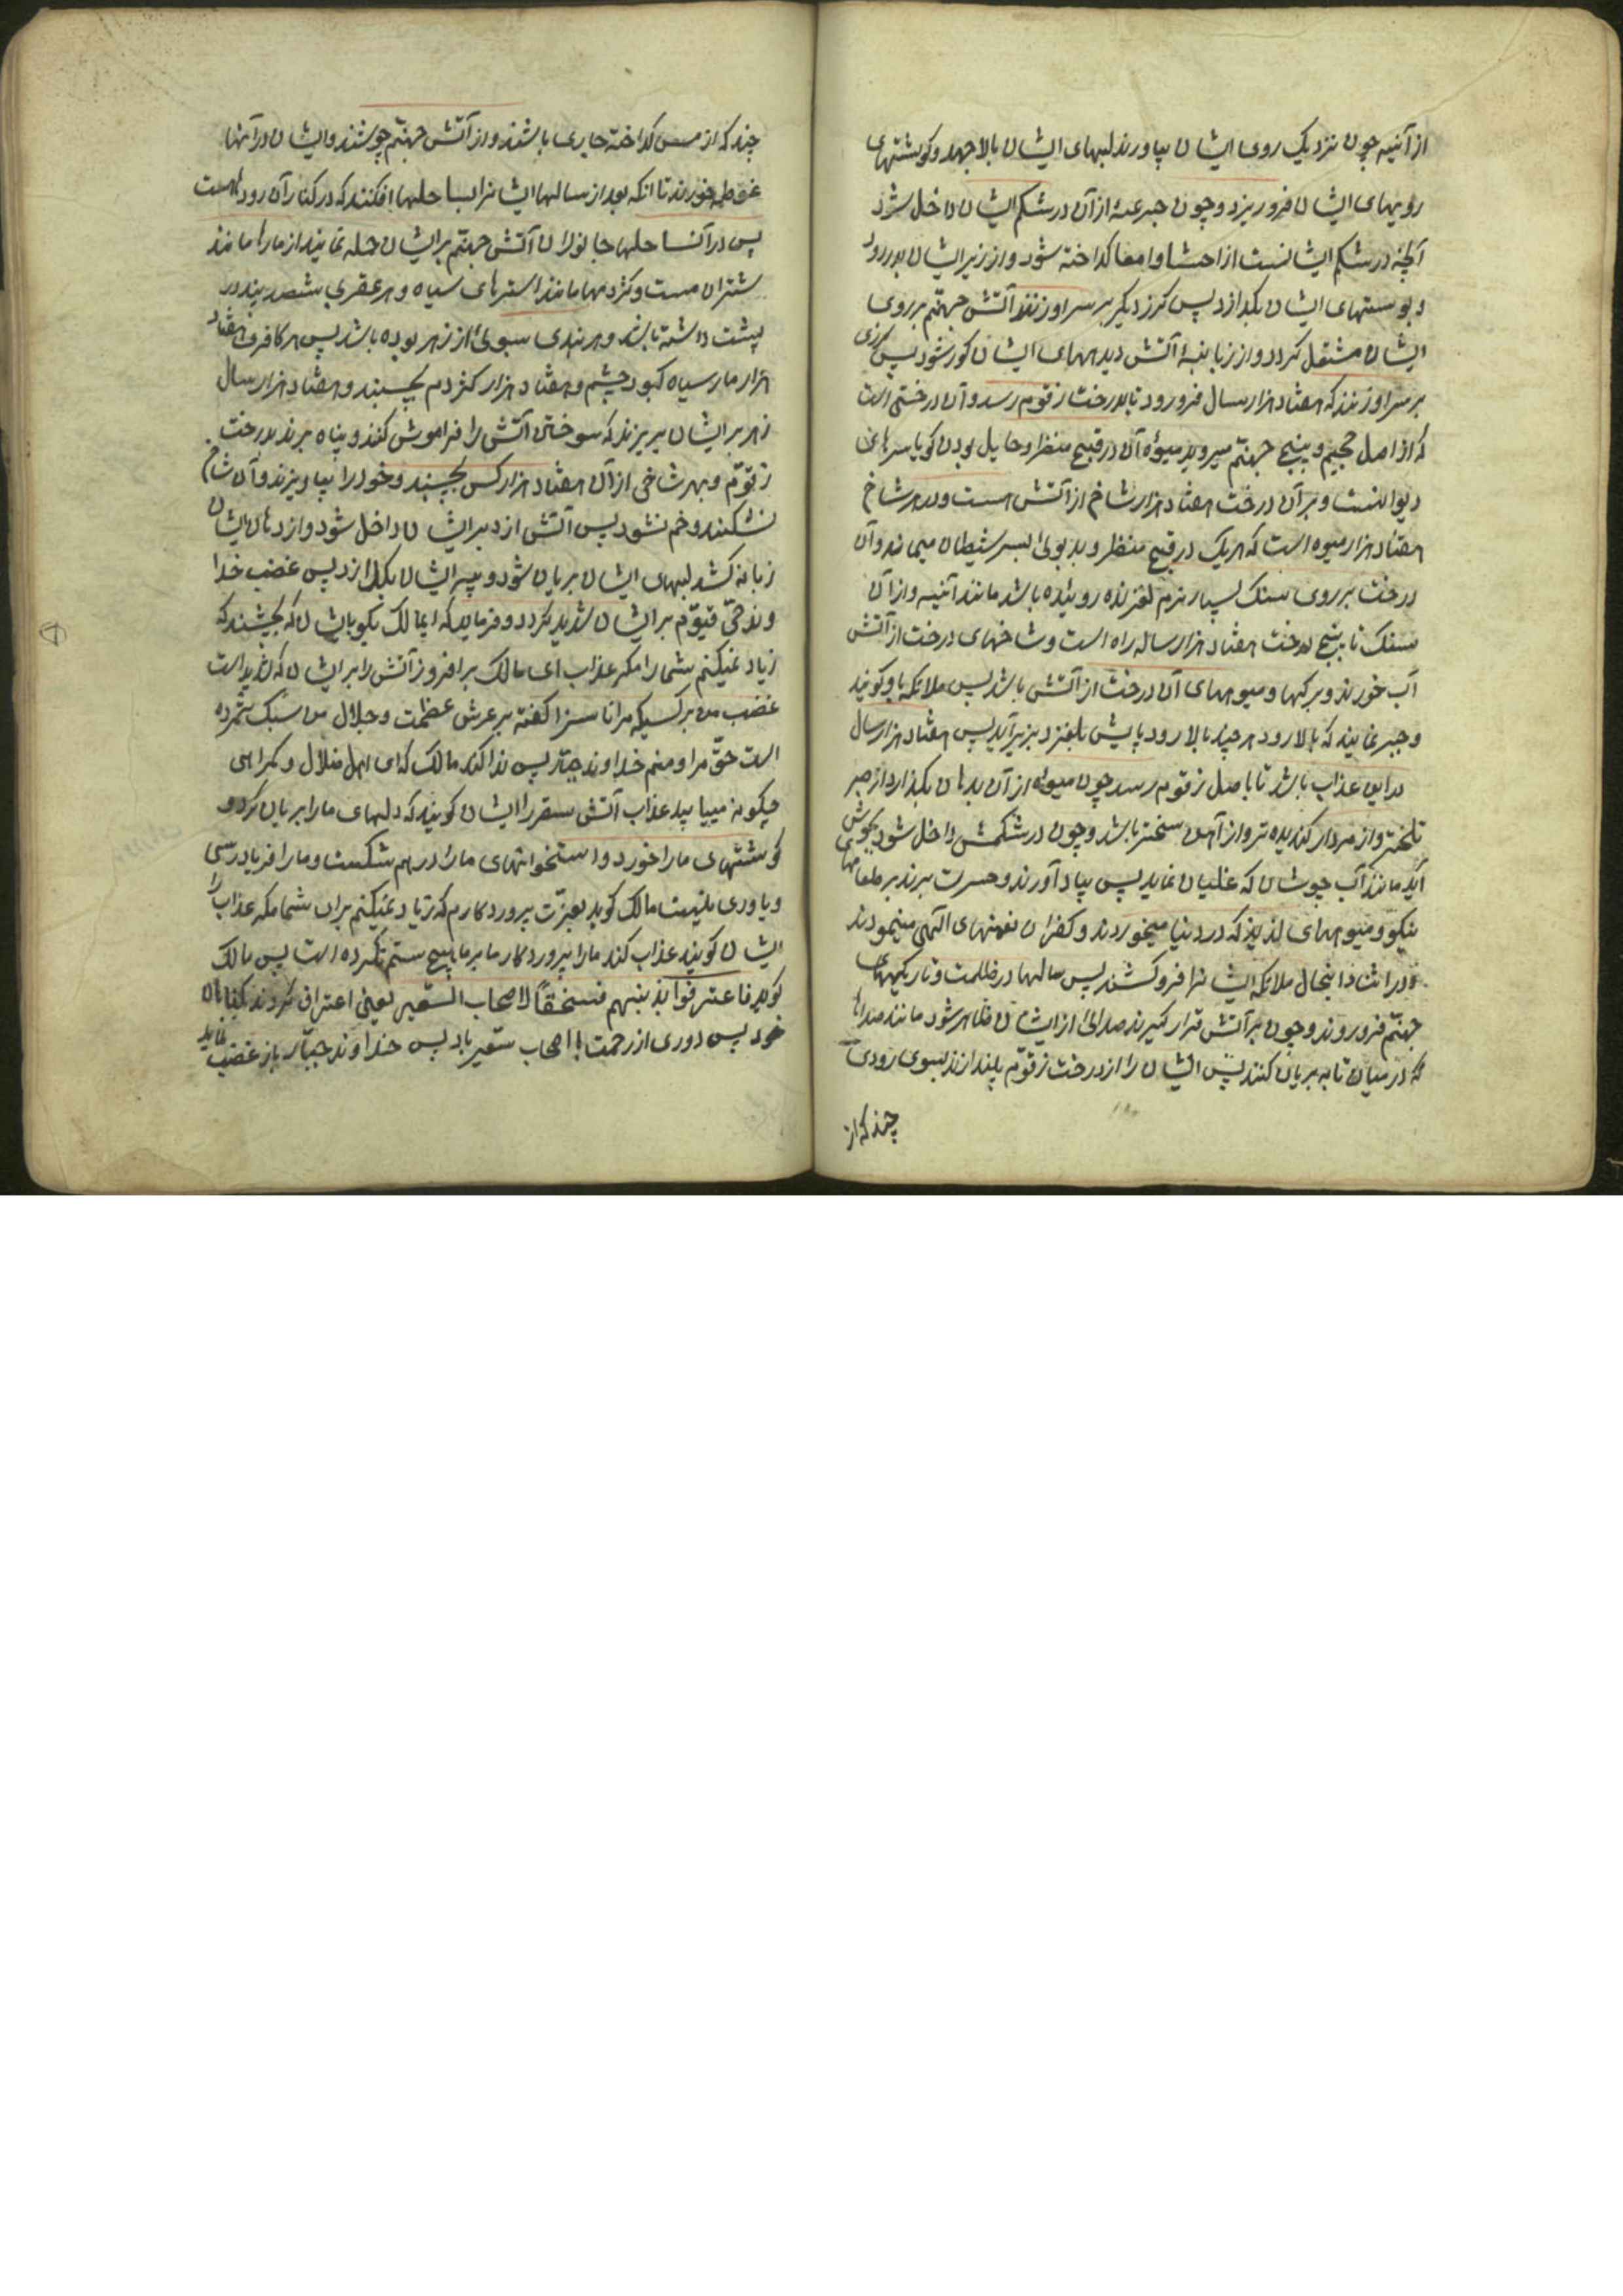 از آنیه چون نزدیک روی ایشان بیاورند لبهای ایشان بالا جهد و کوشتهای
رویهای ایشان فرو ریزد و چون جرعهٔ از آن در شکم ایشان داخل شود
آنچه در شکم ایشانست از احشا و امعا کداخته شود و از زیر ایشان بدر رود
و پوستهای ایشان بکدازد پس کرز دیکر بر سر او زنند آتش جهنّم بر روی
ایشان مشتعل کردد و از زبانهٔ آتش دیدههای ایشان کور شود پس کرزی
بر سر او زنند که هفتاد هزار سال فرو رود تا بدرخت زقوم رسد و آن درختی است
که از اصل جحیم و بیخ جهنّم میروید میوهٔ آن در قبیح منظر و حایل بودن کویا سرهای
دیوانست و بر آن درخت هفتاد هزار شاخ از آتش هست و در هر شاخ
هفتاد هزار میوه است که هر یک در قبیح منظر و بد بوئی بسر شیطان میماند و آن
درخت بر روی سنک بسیار نرم لغزنده روئیده باشد مانند آئنیه و از آن
سنک تا بیخ درخت هفتاد هزار ساله راه است و شاخهای درخت از آتش
آب خورند و برکها و میوههای آن درخت از آتش باشد پس ملائکه باو کویند
و جبر نمایند که بالا رود هر چند بالا رود پایش بلغزد بزیر آید پس هفتاد هزار سال
در این عذاب باشد تا باصل زقوم رسد چون میوهٔ از آن بدهان بکذارد از صبر
تلختر و از مردار کندیده تر و از آهن سختر باشد و چون در شکمش داخل شود بجوش
آید مانند آب جوشان که غلیان نماید پس بیاد آورند و حسرت برند بر طعامهای
نیکو و میوههای لذیذ که در دنیا میخوردند و کفران نعمتهای الهی مینمودند
و در اثناء اینحال ملائکه ایشانرا فرو کشند پس سالها در ظلمت و تاریکیهای
جهنّم فرو روند و چون بر آتش قرار کیرند صدائی از ایشان ظاهر شود مانند صداها
که در میان تابه بریان کنند پس ایشان را از درخت زقوّم بیندازند بسوی رودی
چند که از
چند که از مس کداخته جاری باشند و از آتش جهنّم جوشند و ایشان در آنها
غوطه خورند تا آنکه بعد از سالها ایشانرا بساحلها افکنند که در کنار آن رودهاست
پس در آن ساحلها جانوران آتش جهنّم بر ایشان حمله نمایند از مارها مانند
شتران مست و کژدمها مانند استرهای سیاه و هر عقربی شصد بند در
پشت داشته باشد و هر بندی سبوئی از زهر بوده باشد پس هر کافری هفتاد
هزار مار سیاه کبود چشم و هفتاد هزار کژدم بچسبند و هفتاد هزار سال
زهر بر ایشان بریزند که سوختن آتش را فراموش کنند و پناه برند بدرخت
زقوّم و بهر شاخی از آن هفتاد هزار کس بچسبند و خود را بیاویزند و آن شاخ
نشکند و خم نشود پس آتش از دبر ایشان داخل شود و از دهان ایشان
زبانه کشد لبهای ایشان بریان شود و پیه ایشان بکدازد پس غضب خدا
وند حیّ قیّوم بر ایشان شدید کردد و فرماید که ایمالک بکو بایشان که بچشند که
زیاد نمیکنم شما را مکر عذاب ای مالک برافروز آتش را بر ایشان که شدید است
غضب من بر کسیکه مرا ناسزا کفته بر عرش عظمت و جلال من سبک شمرده
است حقّ مرا و منم خداوند جبّار پس ندا کند مالک که ای اهل ضلال و کمراهی
چکونه مییابید عذاب آتش سقر را ایشان کویند که دلهای ما را بریان کرد و
کوشتهای ما را خورد و استخوانهای ما را در هم شکست و ما را فریاد رسی
و یاوری نیست مالک کوید بعزّت پروردکارم که زیاد نمیکنم بر شما مکر عذاب را
ایشان کویند عذاب کند ما را پروردکار ما بر ما هیچ ستم نکرده است پس مالک
کوید فاعترفوا بذنبهم فسحقاً لاصحاب السّعیر یعنی اعتراف کردند بکناهان
خود پس دوری از رحمت با اصحاب سعیر باد پس خداوند جبّار باز غضب نماید